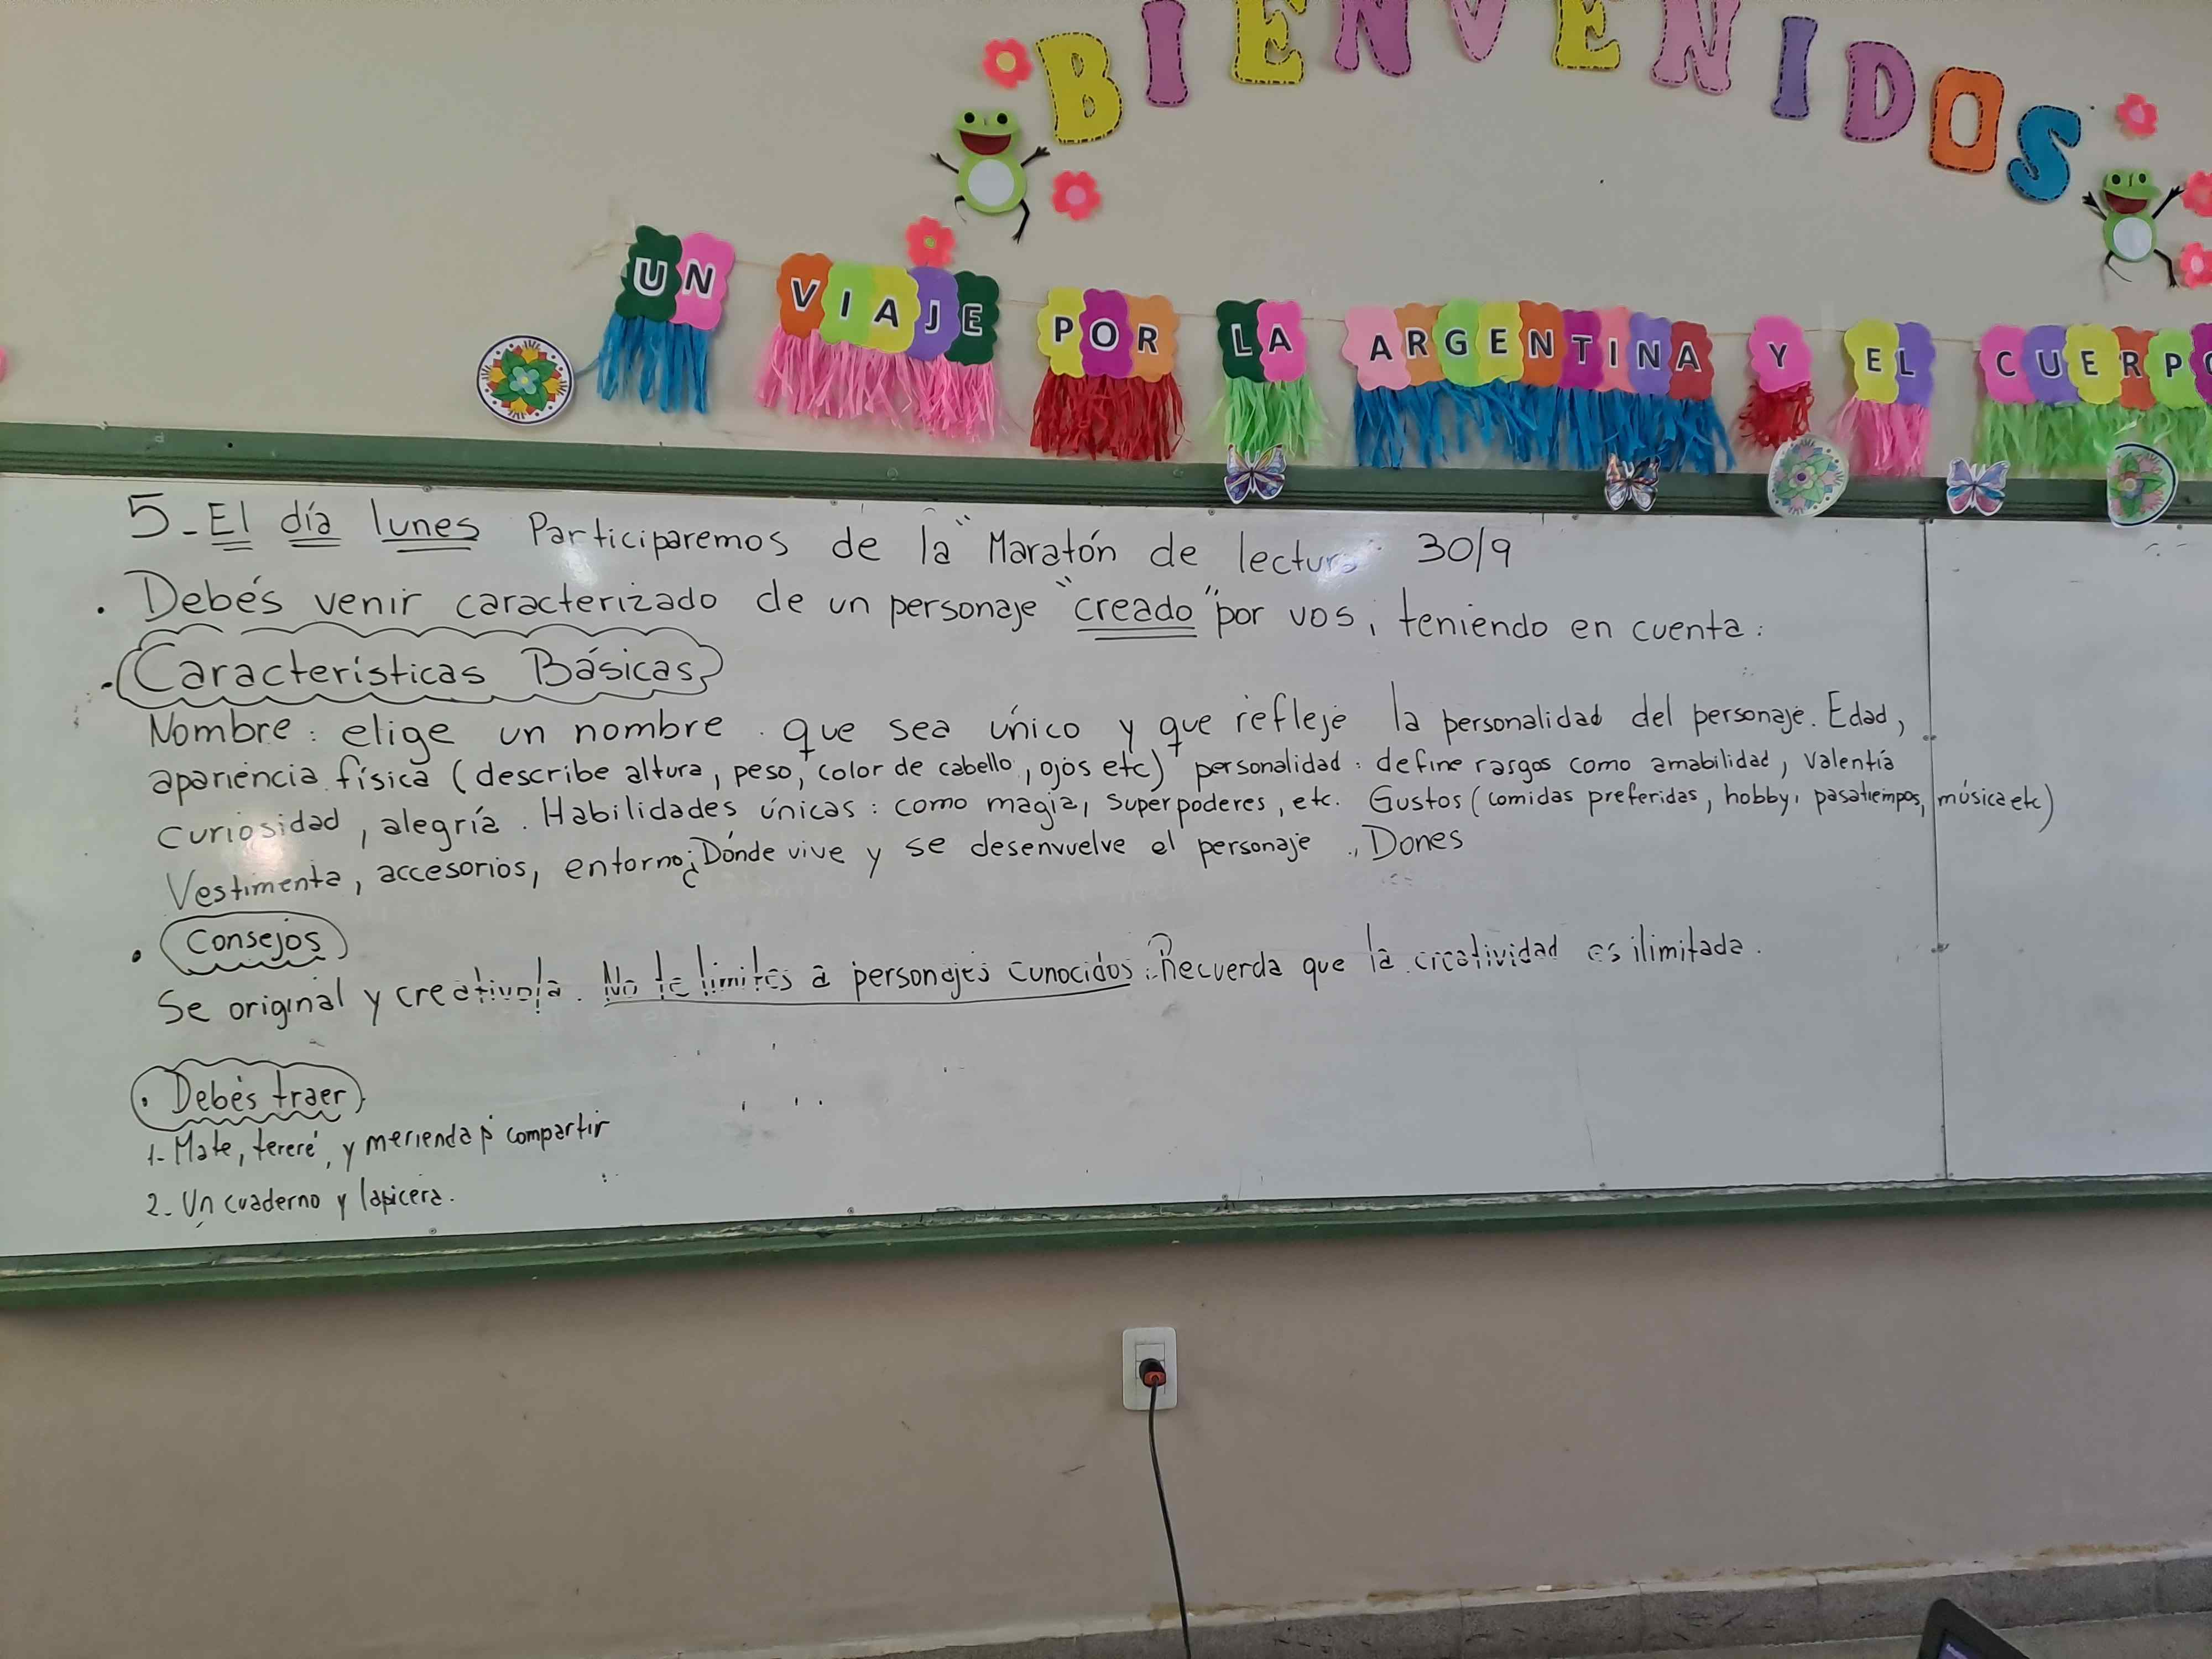 BIENVENIDOS
UN VIAJE POR LA ARGENTINA Y EL CUERPO
5-El día lunes Participaremos de la "Maratón de lectura" 30/9
. Debés venir caracterizado de un personaje "creado" por vos, teniendo en cuenta:
. Características Básicas
Nombre: elige un nombre que sea único y que refleje la personalidad del personaje. Edad,
apariencia física (describe altura, peso, color de cabello, ojos etc) personalidad: define rasgos como amabilidad, valentía
curiosidad, alegría. Habilidades únicas: como magia, superpoderes, etc. Gustos (comidas preferidas, hobby, pasatiempos, música etc)
Vestimenta, accesorios, entorno ¿Dónde vive y se desenvuelve el personaje., Dones
. Consejos
Se original y creativo/a. No te limites a personajes conocidos. Recuerda que la creatividad es ilimitada.
. Debés traer
1- Mate, tereré, y merienda p' compartir
2- Un cuaderno y lapicera.